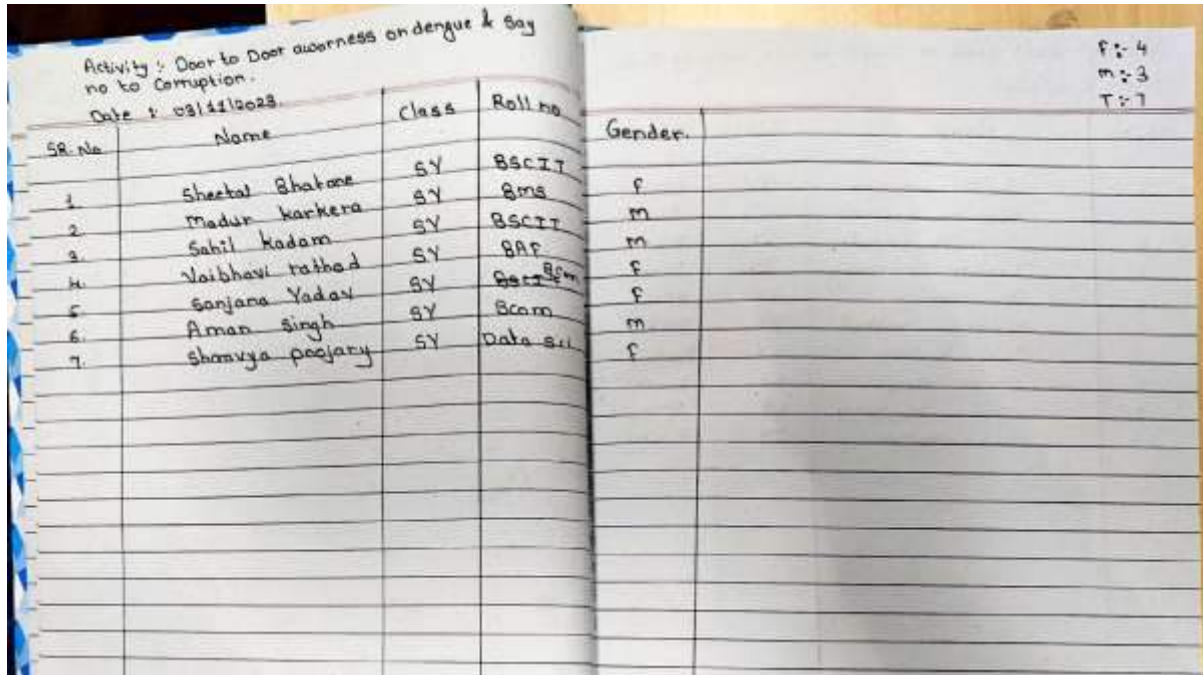 Activity :- Door to Door aworness on dengue & Say
no to Corruption.
Date : 03/11/2023.
F :- 4
m :- 3
T :- 7
SR. No Name Class Roll no Gender.
1 Sheetal Bhatone SY BSCIT F
2. Madur karkera SY Bms m
3. Sahil Kadam SY BSCIT m
4. Vaibhavi rathod SY BAF F
5. Sanjana Yadav SY Bcom F
6. Aman Singh SY Bcom m
7. Shravya poojary SY Data Sci F